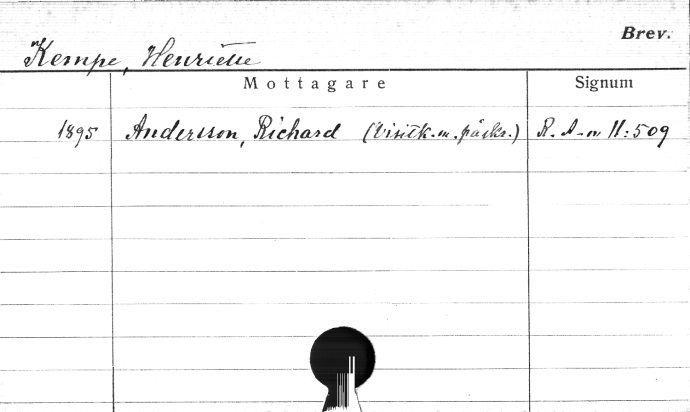 Brev.
Kempe, Henriette
Mottagare Signum
1895 Andersson, Richard (Visitk. m. påskr.) R. A-n II:509